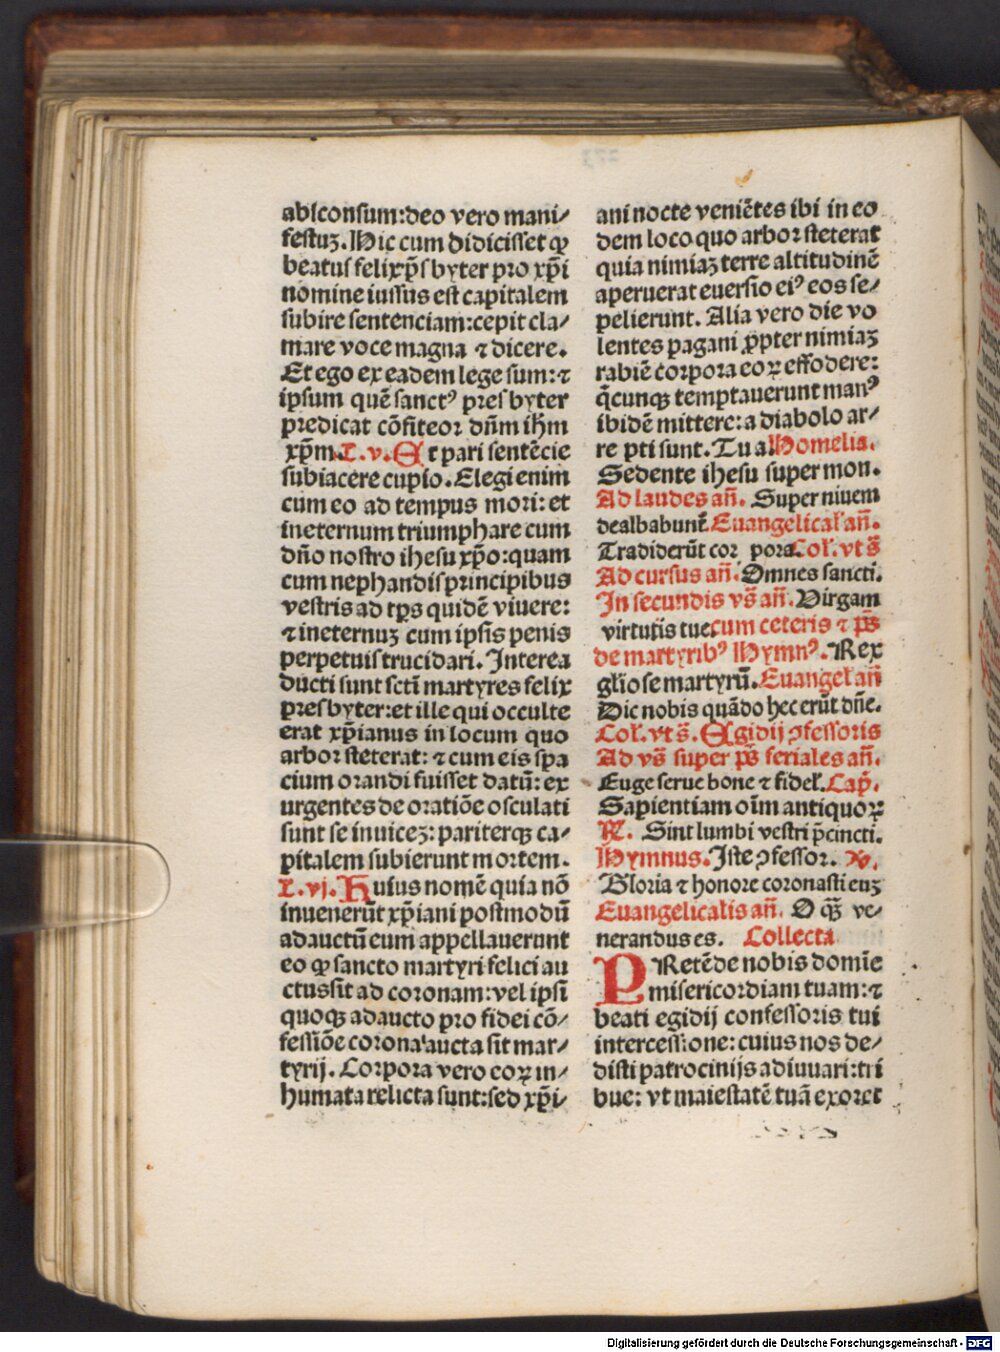 abſconſum:deo vero mani/
feſtuꝫ.Hic cum didiciſſet ꝙ
beatuſ felixp̄ſbyter pro xp̄i
nomine iuſſus eſt capitalem
ſubire ſentenciam:cepit cla/
mare voce magna ⁊ dicere.
Et ego ex eadem lege ſum:⁊
ipſum quē ſanctꝰ preſbyter
predicat cōfiteor dn̄m ih̄m
xp̄m.L.v.Et pari ſentēcie
ſubiacere cupio.Elegi enim
cum eo ad tempus mori:et
ineternum triumphare cum
dn̄o noſtro iheſu xp̄o:quam
cum nephandiſprincipibus
veſtris ad tp̄s quidē viuere:
⁊ ineternuꝫ cum ipſis penis
perpetuiſ trucidari.Interea
ducti ſunt ſcti martyres felix
preſbyter:et ille qui occulte
erat xp̄ianus in locum quo
arbor ſteterat:⁊ cum eis ſpa
cium orandi fuiſſet datū:ex
urgentes de oratiōe oſculati
ſunt ſe inuiceꝫ:pariterqꝫ ca/
pitalem ſubierunt mortem.
L.vj.Huius nomē quia nō
inuenerūt xp̄iani poſtmodū
adauctū eum appellauerunt
eo ꝙ ſancto martyri felici au
ctus ſit ad coronam:vel ipſi
quoqꝫ adaucto pro fidei cō/
feſſiōe corona aucta ſit mar/
tyrij.Corpora vero eoꝝ in/
humata relicta ſunt:ſed xp̄i/
ani nocte veniētes ibi in eo
dem loco quo arbor ſteterat
quia nimiaꝫ terre altitudinē
aperuerat euerſio eiꝰ eos ſe/
pelierunt.Alia vero die vo
lentes pagani ꝓpter nimiaꝫ
rabiē corpora eoꝝ effodere:
q̄cunqꝫ temptauerunt manꝰ
ibidē mittere:a diabolo ar/
re pti ſunt.Tu a.Homelia.
Sedente iheſu super mon.
Ad laudes an̄.Super niuem
dealbabunt̄.Euangelical̄ an̄.
Tradiderūt cor pora.Col̄.vt s̄
Ad curſus an̄.Omnes ſancti.
In ſecundis vs̄ an̄.Virgam
virtutis tue cum ceteris ⁊ ps̄
de martyribꝰ Hymnꝰ.Rex
glioſe martyrū.Euangel̄ an̄
Dic nobis quādo hec erūt dn̄e.
Col̄.vt s̄.Egidij ꝯfeſſoris
Ad vs̄ ſuper ps̄ feriales an̄.
Euge ſerue bone ⁊ fidel̄.Cap̄.
Sapientiam oīm antiquoꝝ
℟. Sint lumbi veſtri p̄cincti.
Hymnus.Iſte ꝯfeſſor. ꝟ.
Gloria ⁊ honore coronaſti euꝫ
Euangelicalis an̄. O qꝫ̄ ve/
nerandus es. Collecta
PRetēde nobis domīe
miſericordiam tuam:⁊
beati egidij confeſſoris tui
interceſſione:cuius nos de/
diſti patrocinijs adiuuari:tri
bue: vt maieſtatē tuā exoret
Digitalisierung gefördert durch die Deutsche Forschungsgemeinschaft - DFG